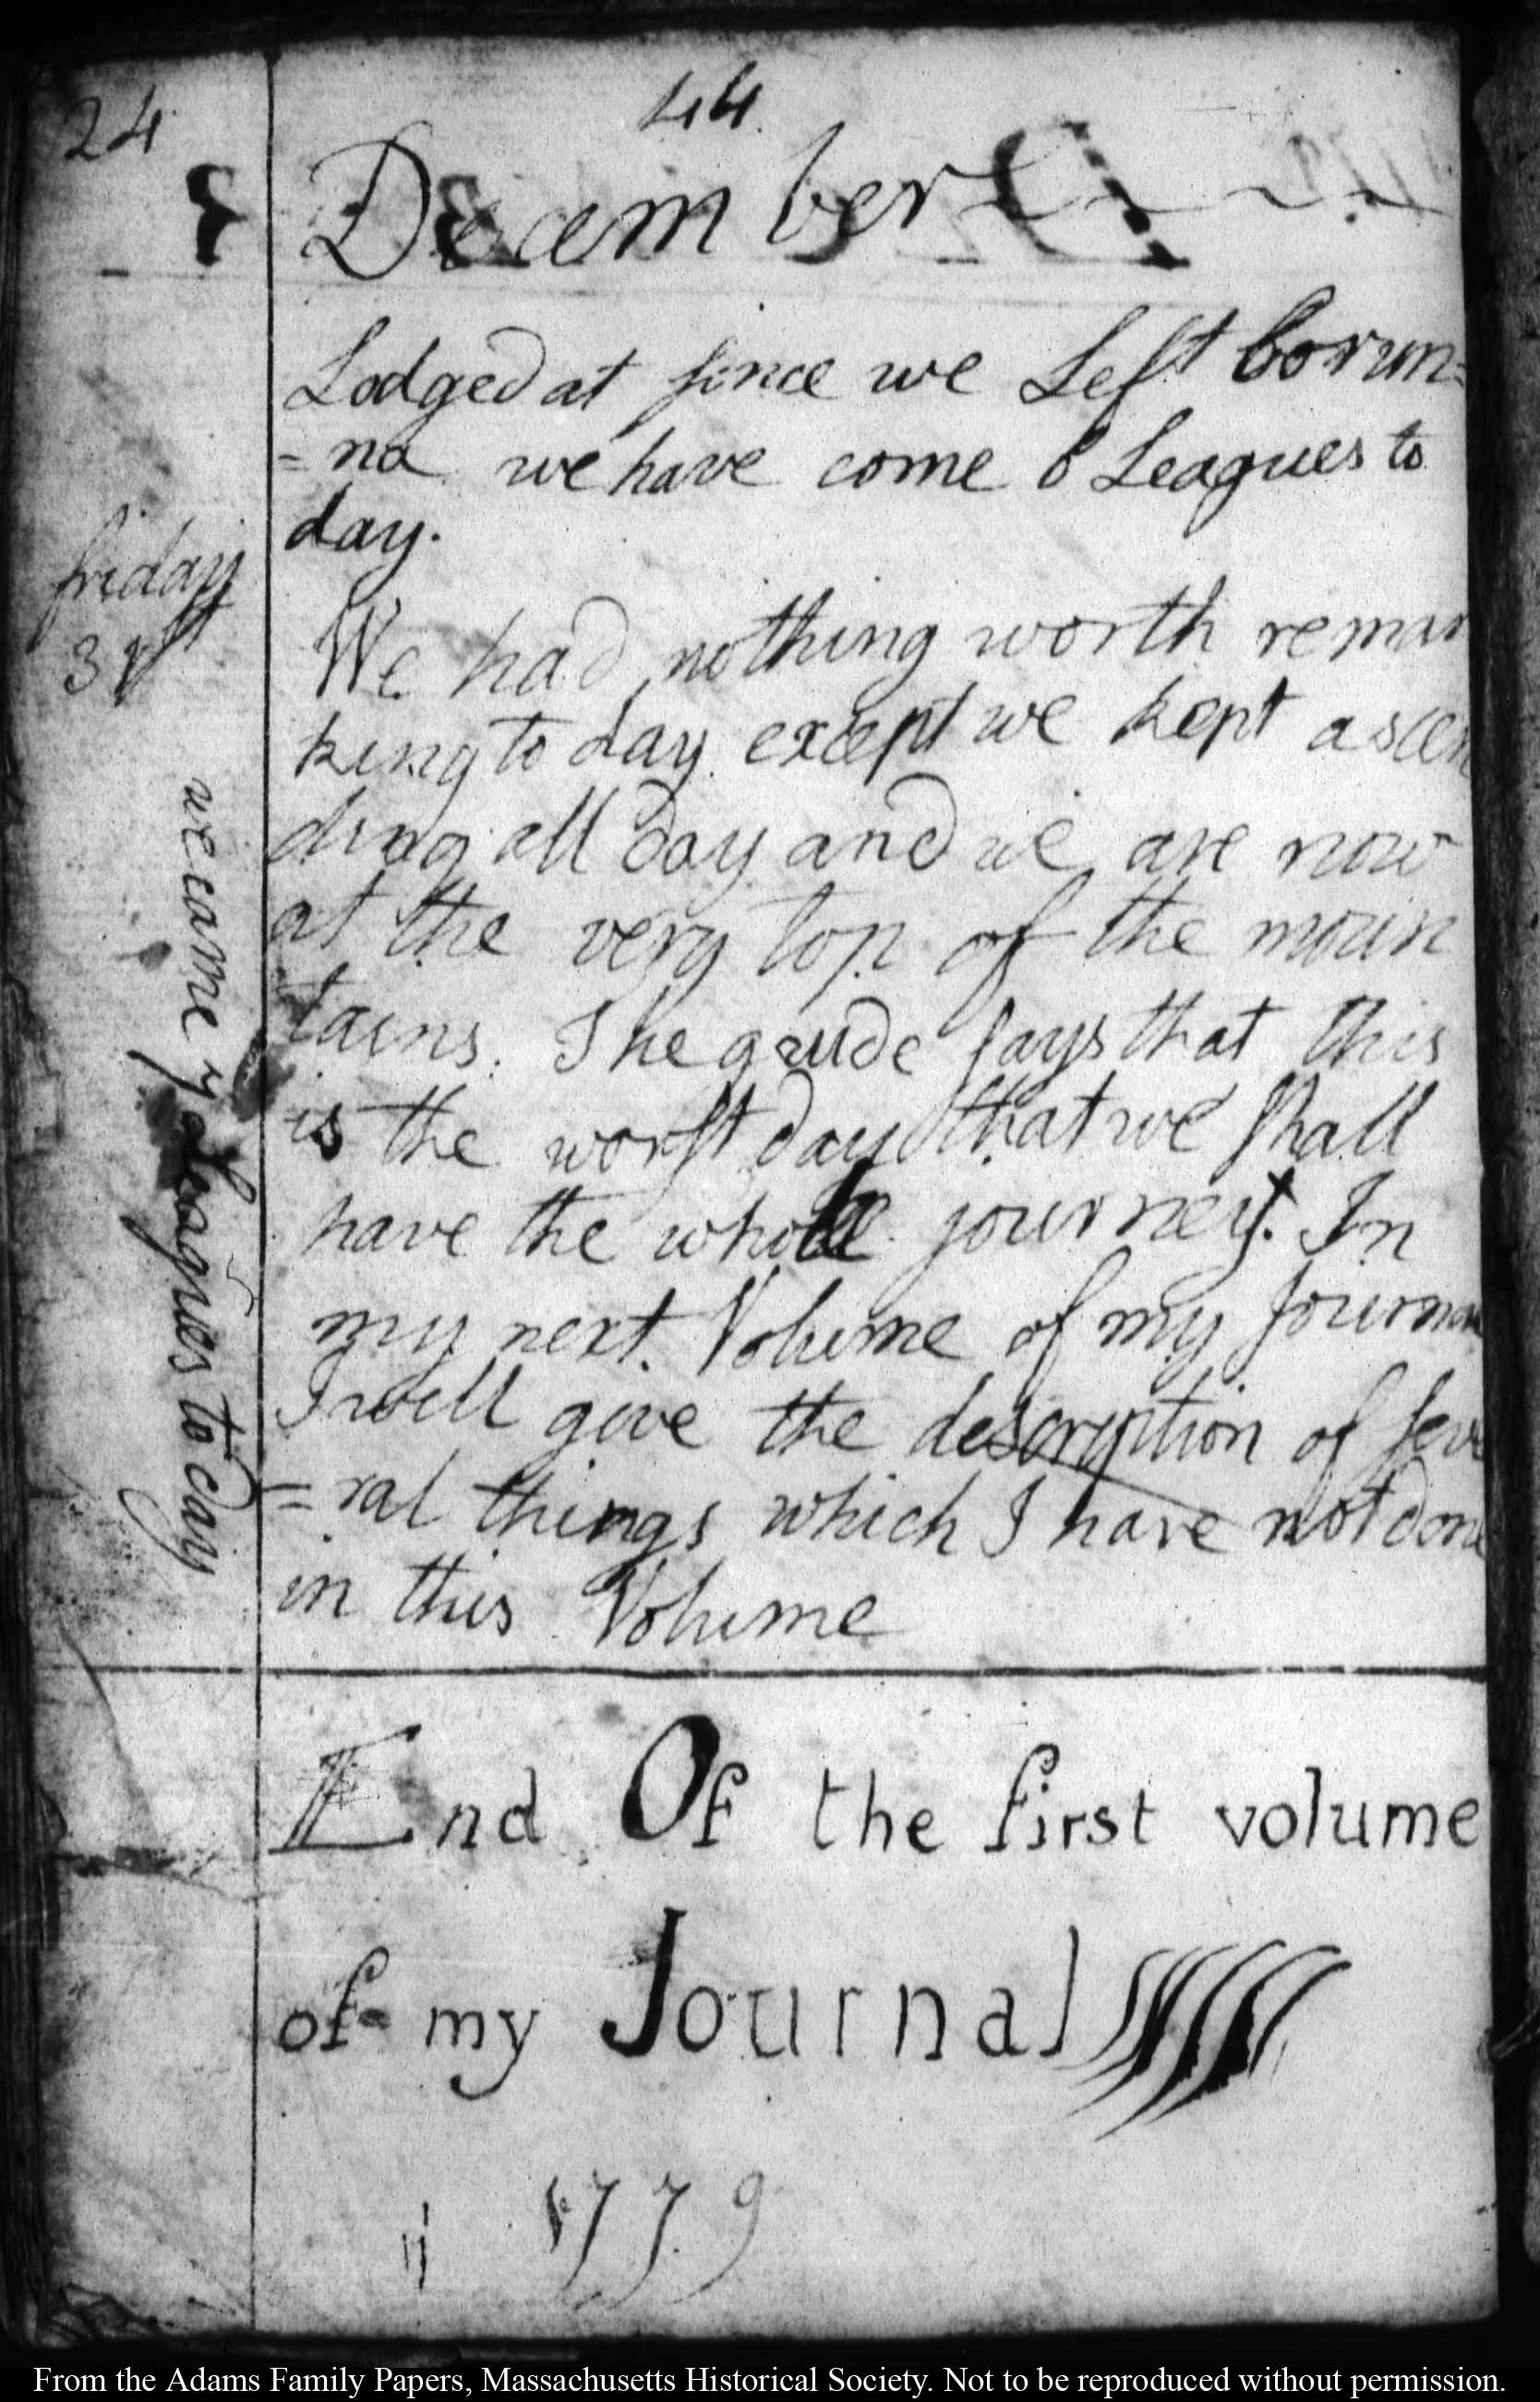 24
44
December
Lodged at since we Left Corun=
=na we have come 6 Leagues to
day.
friday
31st
We had nothing worth remar
king to day except we kept ascen
ding all day and we are now
at the very top of the moun
tains. The guide says that this
is the worst day that we shall
have the whole journey. In
my next Volume of my Journal
I will give the description of seve
=ral things which I have not done
in this Volume
we came 4 Leagues to day
End Of the first volume
of my Journal
1779
From the Adams Family Papers, Massachusetts Historical Society. Not to be reproduced without permission.